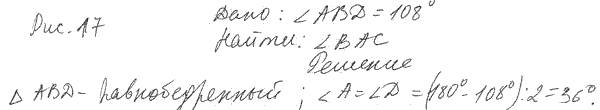 Рис. 17 Дано: ∠ABD = 108°
Найти: ∠BAC
Решение
△ ABD - равнобедренный; ∠A = ∠D = (180° - 108°) : 2 = 36°.